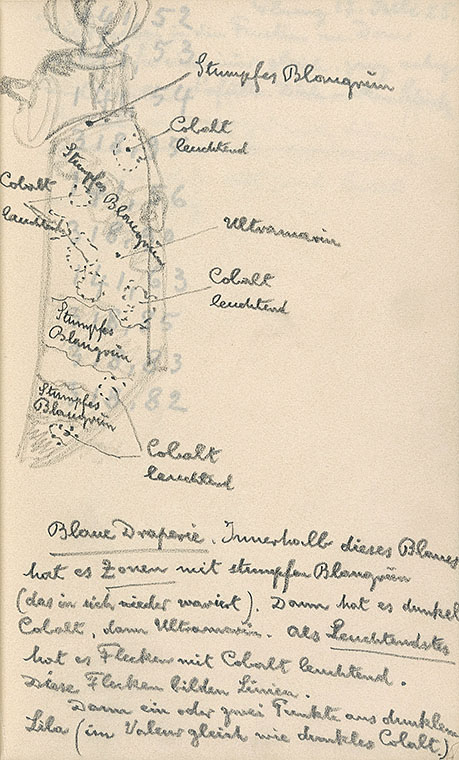 Stumpfes Blaugrün
Cobalt
leuchtend
Stumpfes
Blaugrün
Cobalt
leuchtend
Ultramarin
Cobalt
leuchtend
Stumpfes
Blaugrün
Stumpfes
Blaugrün
Cobalt
leuchtend
Blaue Draperie. Innerhalb dieses Blaues
hat es Zonen mit stumpfen Blaugrün
(das in sich wieder variirt). Dann hat es dunkel
Cobalt, dann Ultramarin. Als Leuchtendstes
hat es Flecken mit Cobalt leuchtend.
Diese Flecken bilden Linien.
Dann ein oder zwei Punkte aus dunklem
Lila (im Valeur gleich wie dunkles Cobalt.)